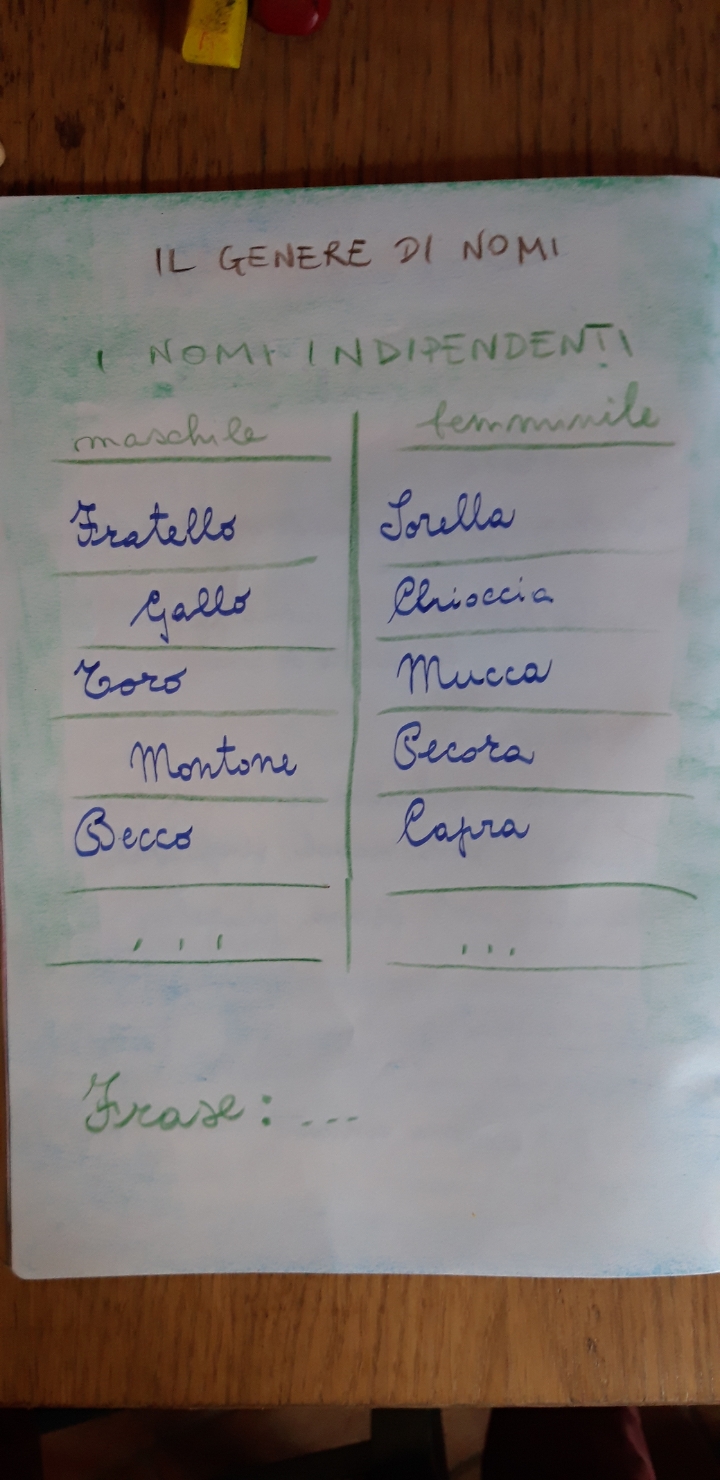 IL GENERE DI NOMI
I NOMI INDIPENDENTI
maschile femminile
Fratello Sorella
Gallo Chioccia
Toro Mucca
Montone Pecora
Becco Capra
... ...
Frase: ...